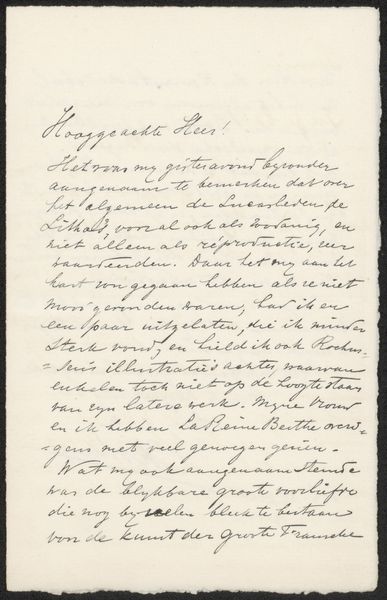 Hooggeachte Heer!
Het was my gisteravond byzonder
aangenaam te bemerken dat over
het algemeen de Lucasleden de
Litho's, vooral ook als zoodanig, en
niet alleen als réproductie, zeer
waardeerden. Daar het my aan het
hart zou gegaan hebben als ze niet
mooi gevonden waren, had ik er
een paar uitgelaten, die ik minder
sterk vond, en hield ik ook Rochus-
=sens illustraties achter, waarvan
enkelen toch niet op de hoogte staan
van zyn latere werk. Myne vrouw
en ik hebben La Reine Berthe overi-
=gens met veel genoegen gezien.
Wat my ook aangenaam stemde
was de blykbare groote voorliefde
die nog by velen bleek te bestaan
voor de kunst der groote Fransche